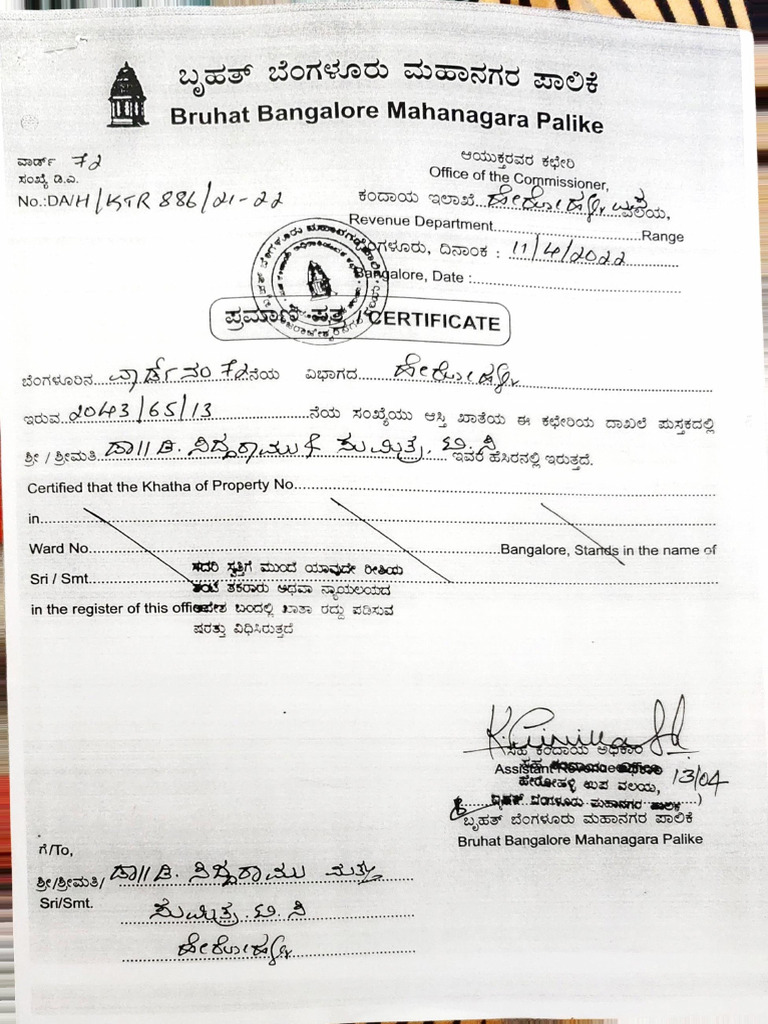 ಬೃಹತ್ ಬೆಂಗಳೂರು ಮಹಾನಗರ ಪಾಲಿಕೆ
Bruhat Bangalore Mahanagara Palike
ವಾರ್ಡ್ 72
ಸಂಖ್ಯೆ ಡಿ.ಎ.
No.:DA/H/KTR 886/21-22
ಆಯುಕ್ತರವರ ಕಛೇರಿ
Office of the Commissioner,
ಕಂದಾಯ ಇಲಾಖೆ, ಹೇರೋಹಳ್ಳಿ ವಲಯ,
Revenue Department..........Range
ಬೆಂಗಳೂರು, ದಿನಾಂಕ : 11/4/2022
Bangalore, Date :..........
ಪ್ರಮಾಣ ಪತ್ರ / CERTIFICATE
ಬೆಂಗಳೂರಿನ ವಾರ್ಡ್ ನಂ 72ನೆಯ ವಿಭಾಗದ ಹೇರೋಹಳ್ಳಿ
ಇರುವ 2043/65/13 ನೆಯ ಸಂಖ್ಯೆಯು ಆಸ್ತಿ ಖಾತೆಯ ಈ ಕಛೇರಿಯ ದಾಖಲೆ ಪುಸ್ತಕದಲ್ಲಿ
ಶ್ರೀ / ಶ್ರೀಮತಿ ಡಾ|| ಡಿ. ಸಿದ್ದರಾಮು & ಸುಮಿತ್ರ. ಬಿ. ಸಿ ಇವರ ಹೆಸರಿನಲ್ಲಿ ಇರುತ್ತದೆ.
Certified that the Khatha of Property No..........
in..........
Ward No..........Bangalore, Stands in the name of
Sri / Smt..........
in the register of this office
ಸದರಿ ಸ್ವತ್ತಿಗೆ ಮುಂದೆ ಯಾವುದೇ ರೀತಿಯ
ತಂಟೆ ತಕರಾರು ಅಥವಾ ನ್ಯಾಯಲಯದ
ಆದೇಶ ಬಂದಲ್ಲಿ ಖಾತಾ ರದ್ದು ಪಡಿಸುವ
ಷರತ್ತು ವಿಧಿಸಿರುತ್ತದೆ
ಸಹ ಕಂದಾಯ ಅಧಿಕಾರಿ
Assistant Revenue
ಹೇರೋಹಳ್ಳಿ ಉಪ ವಲಯ,
13/04
ಬೃಹತ್ ಬೆಂಗಳೂರು ಮಹಾನಗರ ಪಾಲಿಕೆ
ಬೃಹತ್ ಬೆಂಗಳೂರು ಮಹಾನಗರ ಪಾಲಿಕೆ
Bruhat Bangalore Mahanagara Palike
ಗೆ/To,
ಶ್ರೀ/ಶ್ರೀಮತಿ/ ಡಾ|| ಡಿ. ಸಿದ್ದರಾಮು ಮತ್ತು
Sri/Smt. ಸುಮಿತ್ರ. ಬಿ. ಸಿ
ಹೇರೋಹಳ್ಳಿ